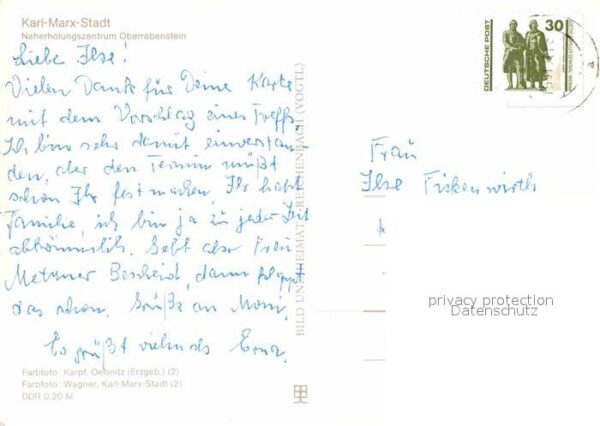 Karl-Marx-Stadt
Naherholungszentrum Oberrabenstein
Liebe Ilse!
Vielen Dank für Deine Karte
mit dem Vorschlag eines Treffs.
Ich bin sehr damit einverstan-
den, aber den Termin müßt
schon Ihr festmachen. Ihr habt
Familie, ich bin ja zu jeder Zeit
abkömmlich. Gebt aber Frau
Metzner Bescheid, dann klappt
das schon. Grüße an Moni.
Es grüßt vielmals Erna.
Farbfoto: Karpf, Oelsnitz (Erzgeb.) (2)
Farbfoto: Wagner, Karl-Marx-Stadt (2)
DDR 0,20 M
BILD UND HEIMAT REICHENBACH (VOGTL)
DEUTSCHE POST
30
Frau
Ilse Fickenwirth
privacy protection
Datenschutz